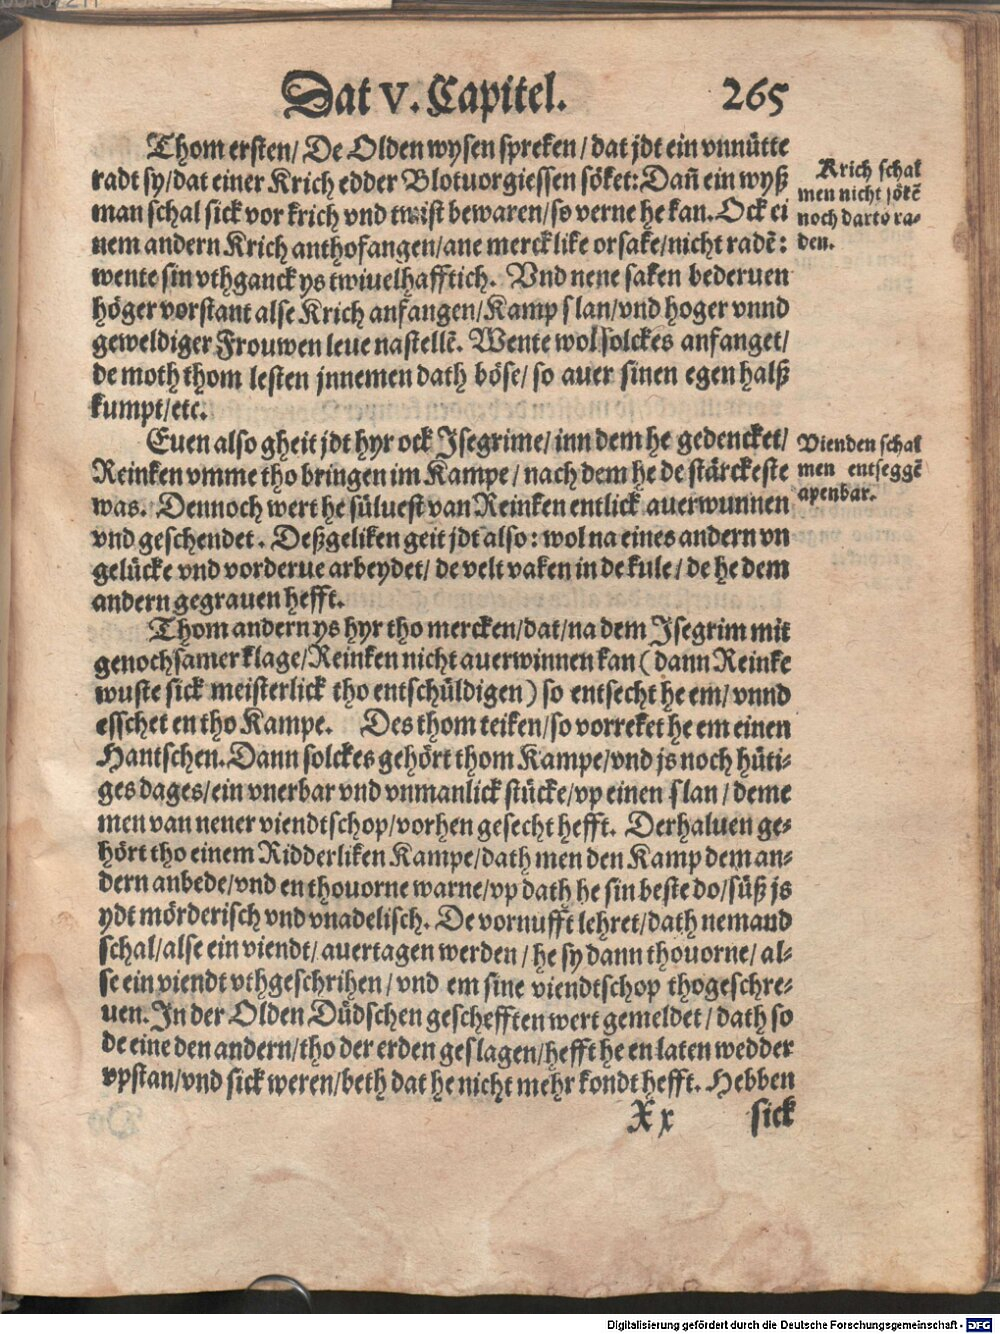 Dat V. Capitel. 265
Thom ersten/ De Olden wysen spreken/ dat jdt ein vnnütte
radt sy/dat einer Krich edder Blotuorgiessen söket: Dañ ein wyß
man schal sick vor krich vnd twist bewaren/so verne he kan. Ock ei
nem andern Krich anthofangen/ane mercklike orsake/nicht radē:
wente sin vthganck ys twiuelhafftich. Vnd nene saken bederuen
höger vorstant alse Krich anfangen/Kamp slan/vnd hoger vnnd
geweldiger Frouwen leue nastellē. Wente wol solckes anfanget/
de moth thom lesten jnnemen dath böse/ so auer sinen egen halß
kumpt/etc.
Krich schal
men nicht sökē
noch darto ra-
den.
Euen also gheit jdt hyr ock Jsegrime/ inn dem he gedencket/
Reinken vmme tho bringen im Kampe/ nach dem he de stärckeste
was. Dennoch wert he süluest van Reinken entlick auerwunnen
vnd geschendet. Deßgeliken geit jdt also: wol na eines andern vn
gelücke vnd vorderue arbeydet/ de velt vaken in de kule/ de he dem
andern gegrauen hefft.
Vienden schal
men entseggē
apenbar.
Thom andern ys hyr tho mercken/dat/na dem Jsegrim mit
genochsamer klage/Reinken nicht auerwinnen kan (dann Reinke
wuste sick meisterlick tho entschüldigen) so entsecht he em/ vnnd
esschet en tho Kampe. Des thom teiken/so vorreket he em einen
Hantschen. Dann solckes gehört thom Kampe/vnd js noch hüti-
ges dages/ein vnerbar vnd vnmanlick stücke/vp einen slan/ deme
men van nener viendtschop/vorhen gesecht hefft. Derhaluen ge-
hört tho einem Ridderliken Kampe/dath men den Kamp dem an-
dern anbede/vnd en thouorne warne/vp dath he sin beste do/süß js
ydt mörderisch vnd vnadelisch. De vornufft lehret/dath nemand
schal/alse ein viendt/auertagen werden/ he sy dann thouorne/ al-
se ein viendt vthgeschrihen/ vnd em sine viendtschop thogeschre-
uen. In der Olden Düdschen geschefften wert gemeldet/ dath so
de eine den andern/tho der erden geslagen/hefft he en laten wedder
vpstan/vnd sick weren/beth dat he nicht mehr kondt hefft. Hebben
Xx sick
Digitalisierung gefördert durch die Deutsche Forschungsgemeinschaft - DFG